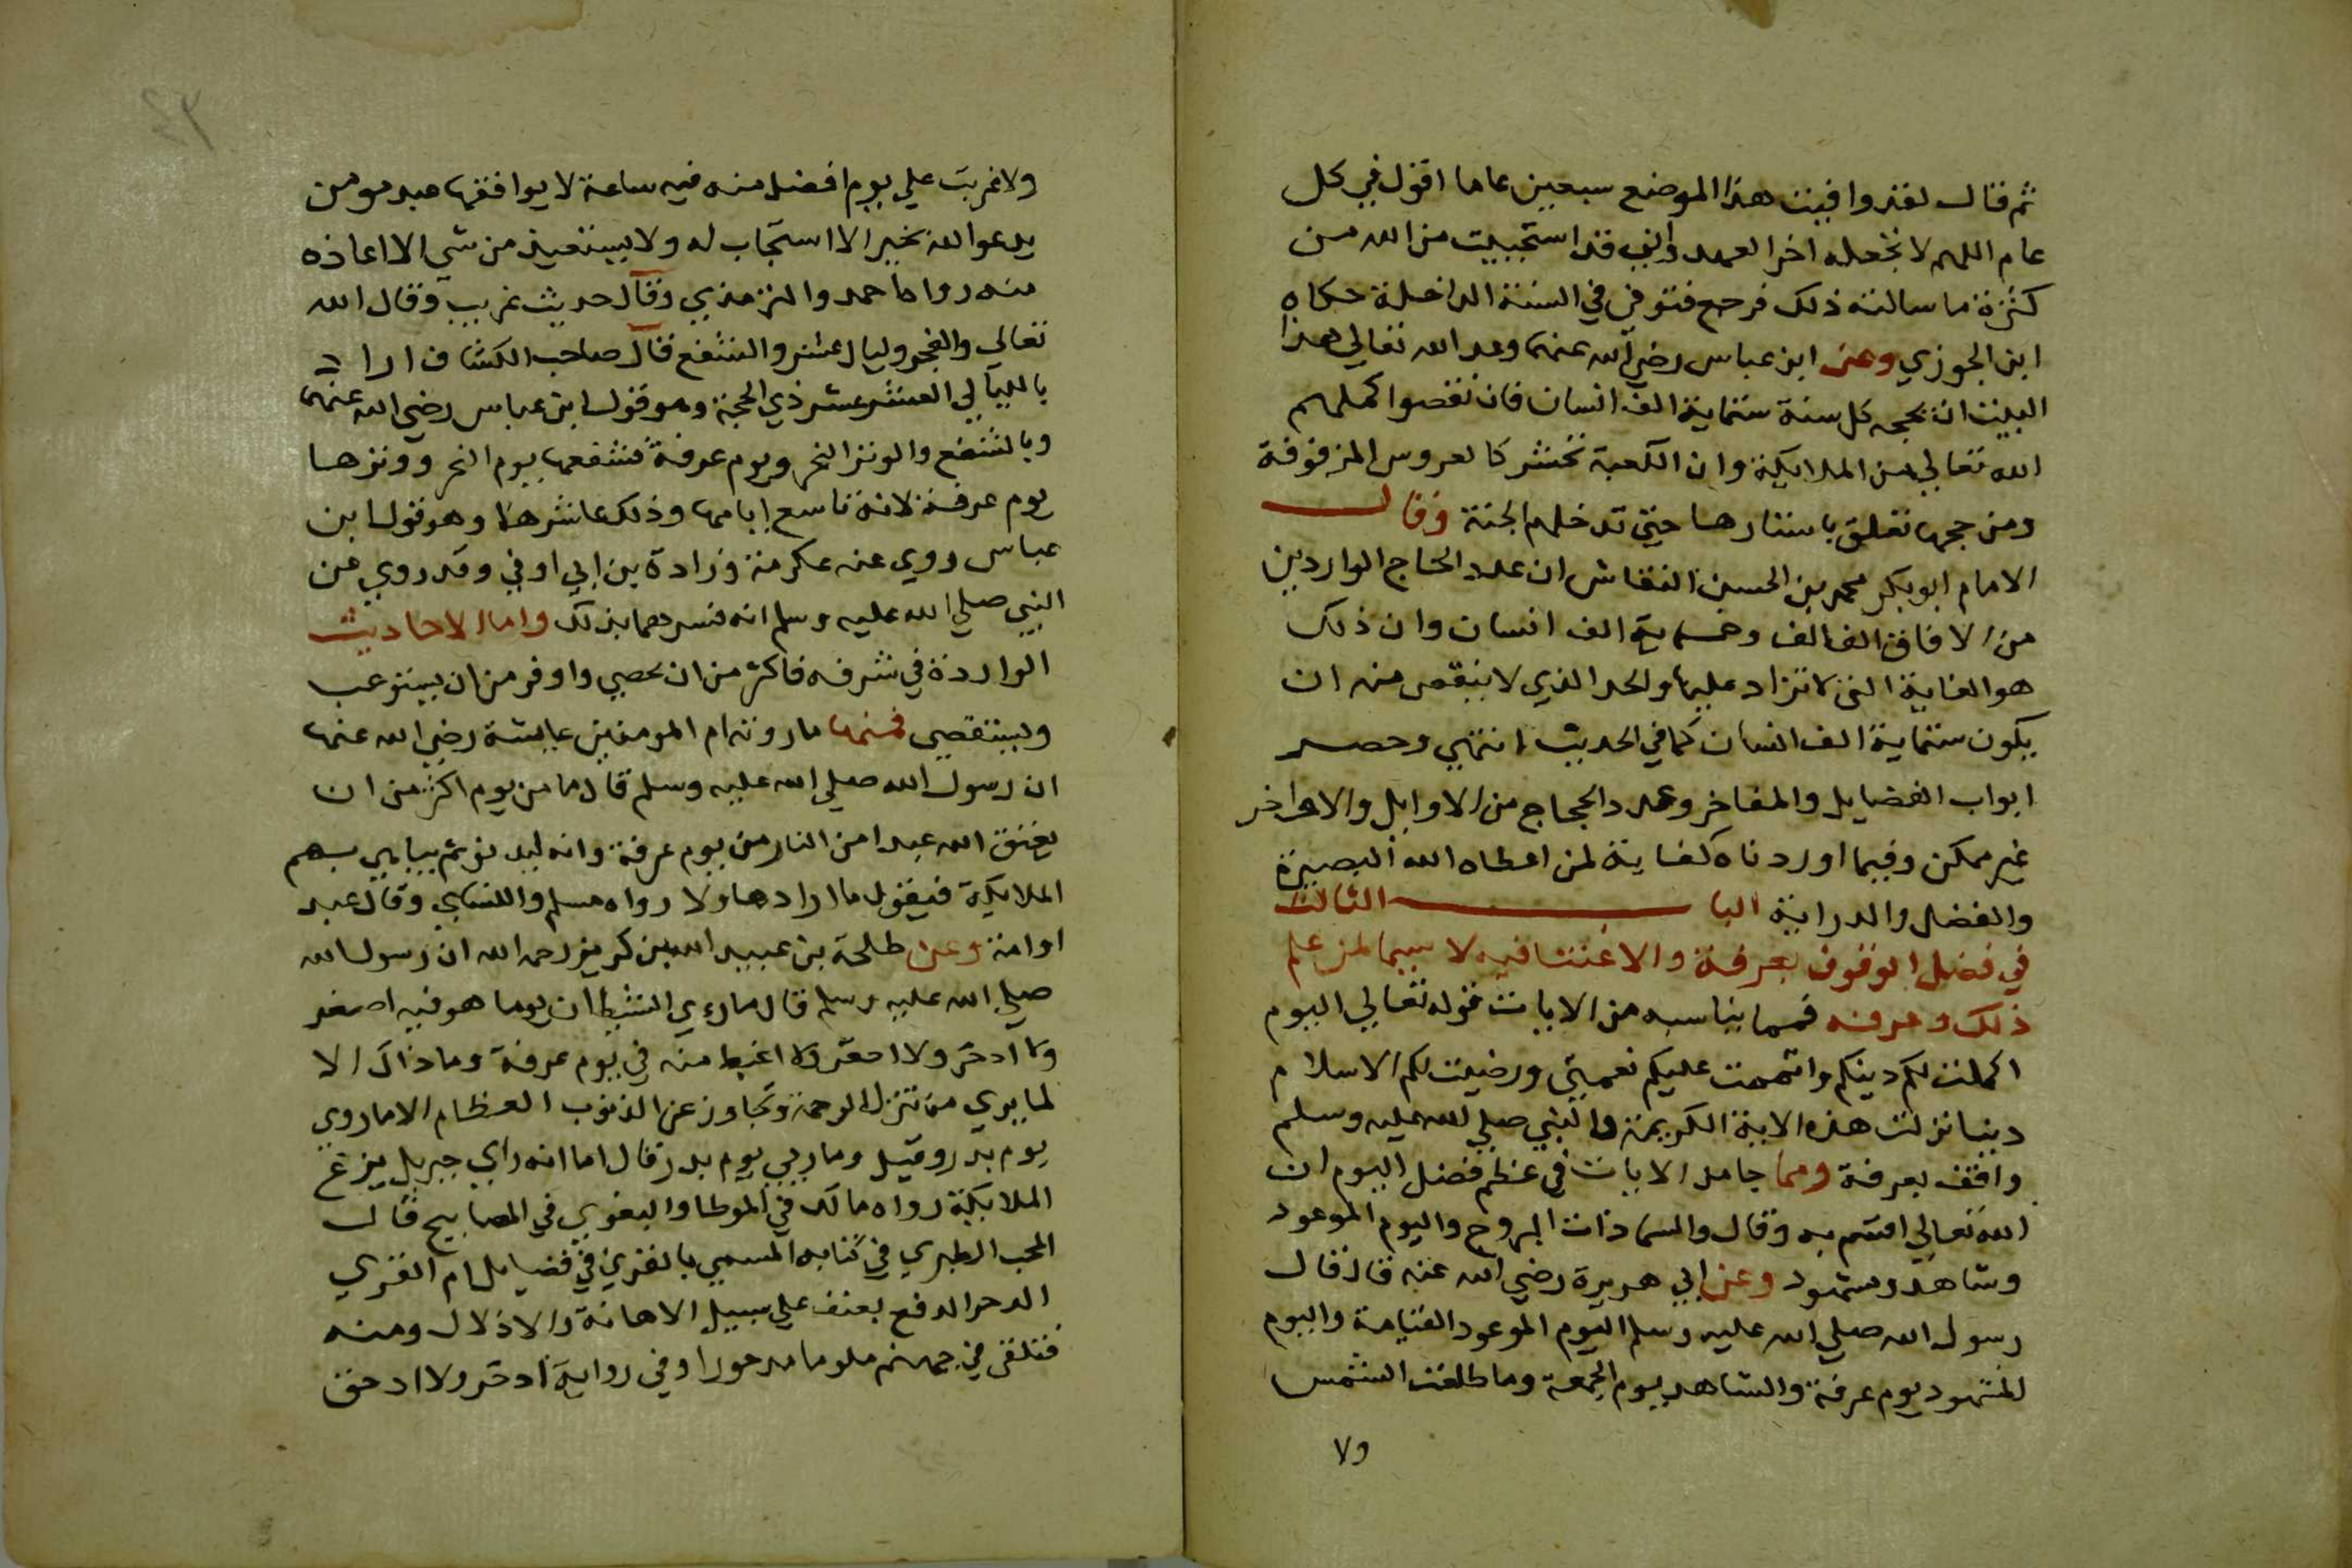 ثم قال لقد وافيت هذا الموضع سبعين عاما اقول في كل
عام اللهم لا تجعله اخر العهد واني قد استحييت من الله من
كثرة ما سالته ذلك فرجع فتوفي في السنة الداخلة حكاه
ابن الجوزي وعن ابن عباس رضي الله عنهما وعد الله تعالي هذا
البيت ان يحجه كل سنة ستماية الف انسان فان نقصوا كملهم
الله تعالي من الملايكة وان الكعبة تحشر كالعروس المزفوفة
ومن حجها تعلق باستارها حتي تدخلهم الجنة وقال
الامام ابو بكر محمد بن الحسين النقاش ان عدد الحاج الواردين
من الافاق الف الف وخمسماية الف انسان وان ذلك
هو الغاية التي لا تزاد عليها والحد الذي لا ينقص منه ان
يكون ستماية الف انسان كما في الحديث انتهي وحصر
ابواب الفضايل والمفاخر وعدد الحجاج من الاوايل والاواخر
غير ممكن وفيما اوردناه كفاية لمن اعطاه الله البصيرة
والفضل والدراية الباب الثالث
في فضل الوقوف بعرفة والاعتنا فيه لا سيما لمن علم
ذلك وعرفه فمما يناسبه من الايات قوله تعالي اليوم
اكملت لكم دينكم واتممت عليكم نعمتي ورضيت لكم الاسلام
دينا نزلت هذه الاية الكريمة والنبي صلي الله عليه وسلم
واقف بعرفة ومما جا من الايات في عظم فضل اليوم ان
الله تعالي اقسم به وقال والسما ذات البروج واليوم الموعود
وشاهد ومشهود وعن ابي هريرة رضي الله عنه قال قال
رسول الله صلي الله عليه وسلم اليوم الموعود القيامة واليوم
المشهود يوم عرفة والشاهد يوم الجمعة وما طلعت الشمس
ولا
ولا غربت علي يوم افضل منه فيه ساعة لا يوافقها عبد مومن
يدعو الله بخير الا استجاب له ولا يستعيذ من شي الا اعاذه
منه رواه احمد والترمذي وقال حديث غريب وقال الله
تعالي والفجر وليال عشر والشفع قال صاحب الكشاف اراد
بالليالي العشر عشر ذي الحجة وهو قول ابن عباس رضي الله عنهما
وبالشفع والوتر النحر ويوم عرفة فشفعها يوم النحر ووترها
يوم عرفة لانه تاسع ايامها وذلك عاشرها وهو قول ابن
عباس روي عنه عكرمة وزرادة بن ابي اوفي وقد روي عن
النبي صلي الله عليه وسلم انه فسرهما بذلك واما الاحاديث
الواردة في شرفه فاكثر من ان تحصي واوفر من ان يستوعب
ويستقصي فمنها ما روته ام المومنين عايشة رضي الله عنها
ان رسول الله صلي الله عليه وسلم قال ما من يوم اكثر من ان
يعتق الله عبدا من النار من يوم عرفة وانه ليدنو ثم يباهي بهم
الملايكة فيقول ما اراد هاولا رواه مسلم والنساي وقال عبدا
او امة وعن طلحة بن عبيد الله بن كريز رحمه الله ان رسول الله
صلي الله عليه وسلم قال ما رءي الشيطان يوما هو فيه اصغر
ولا ادحر ولا احقر ولا اغيظ منه في يوم عرفة وما ذاك الا
لما يري من تنزل الرحمة وتجاوز عن الذنوب العظام الا ما روي
يوم بدر وقيل وما ريي يوم بدر قال اما انه راي جبريل يزع
الملايكة رواه مالك في الموطا والبغوي في المصابيح قال
المحب الطبري في كتابه المسمي بالقري في فضايل ام القري
الدحر الدفع بعنف علي سبيل الاهانة والاذلال ومنه
فتلقي في جهنم ملوما مدحورا وفي رواية ادحر ولا ادحق